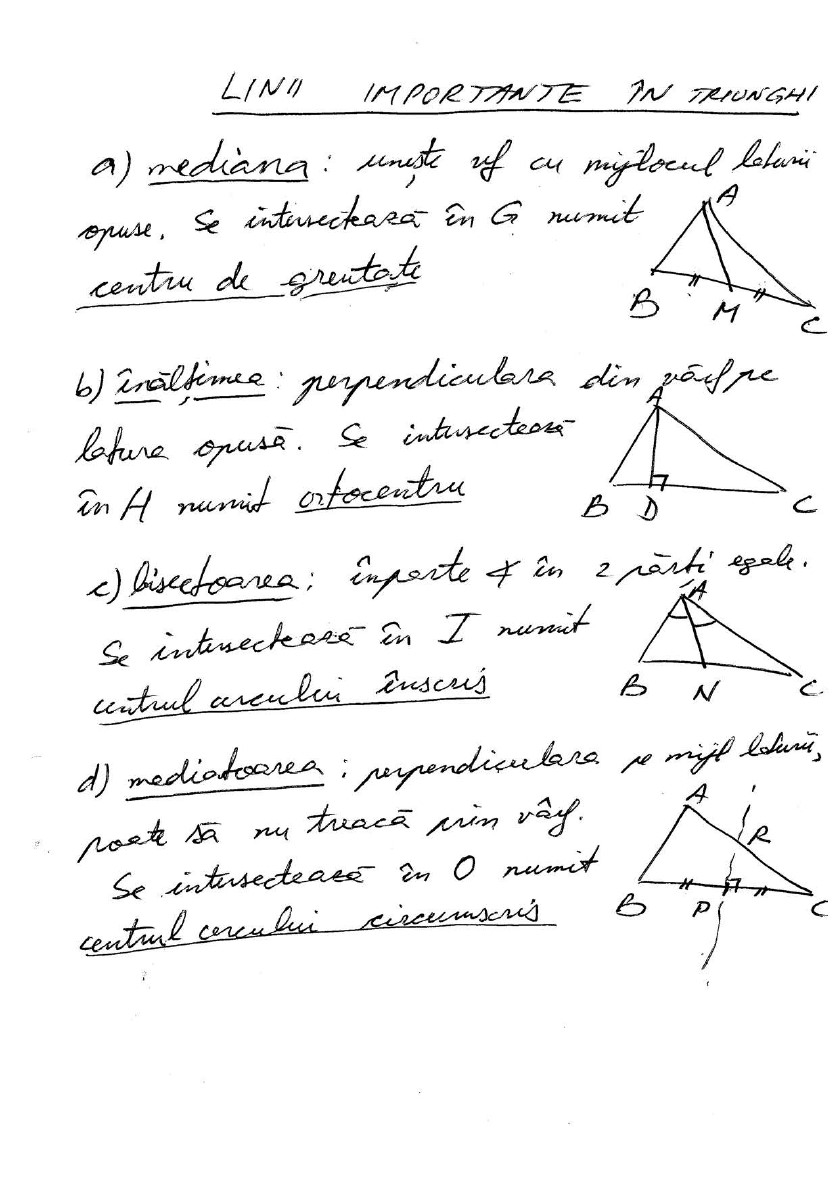 LINII IMPORTANTE ÎN TRIUNGHI
a) mediana : unește vf cu mijlocul laturii
opuse. Se intersectează în G numit
centru de greutate
A
B M C
b) înălțimea : perpendiculara din vârf pe
latura opusă. Se intersectează
în H numit ortocentru
A
B D C
c) bisectoarea : împarte ∢ în 2 părți egale.
Se intersectează în I numit
centrul cercului înscris
A
B N C
d) mediatoarea : perpendiculara pe mijl laturii,
poate să nu treacă prin vârf.
Se intersectează în O numit
centrul cercului circumscris
A
R
B P C